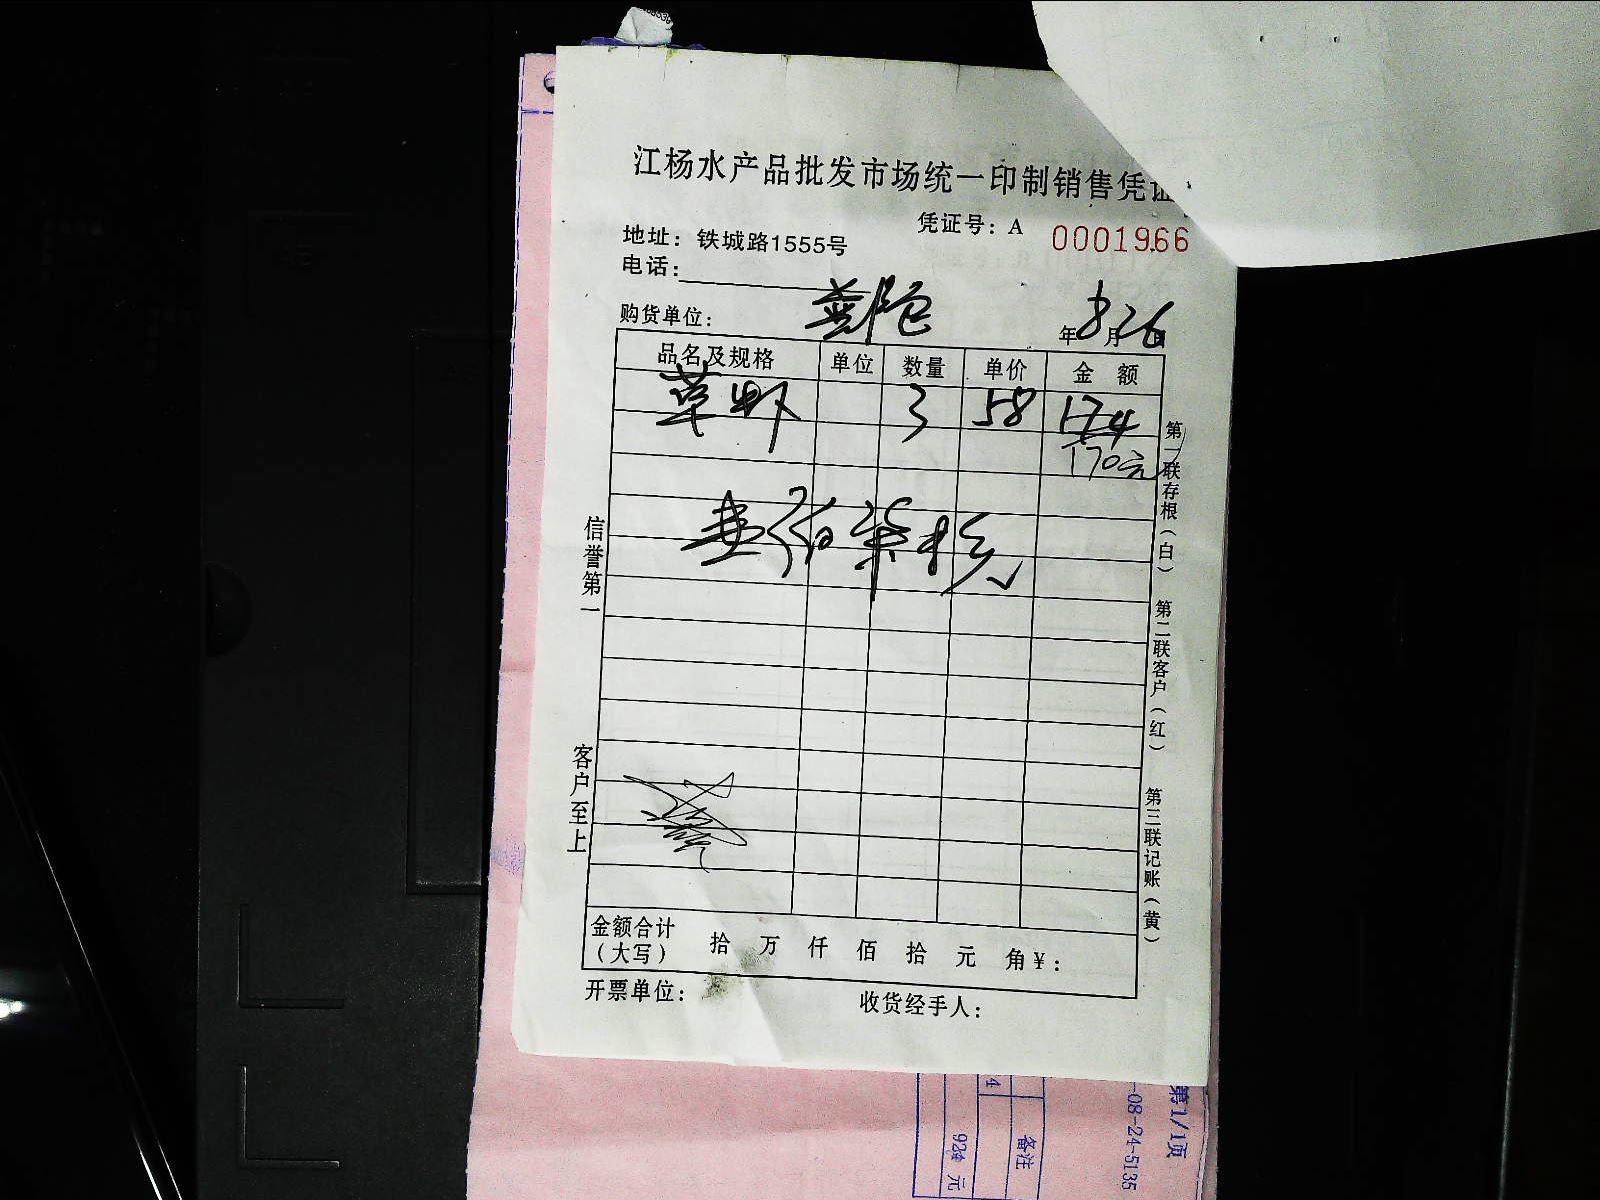 江杨水产品批发市场统一印制销售凭证
凭证号：A 0001966
地址：铁城路1555号
电话：
购货单位：
年8月26日
品名及规格 单位 数量 单价 金额
草虾 3 58 174
170元
壹佰柒拾元
信誉第一
客户至上
第一联存根（白）
第二联客户（红）
第三联记账（黄）
金额合计（大写） 拾 万 仟 佰 拾 元 角 ¥：
开票单位：
收货经手人：
第1/1页
-08-24-5135
备注
4
924 元